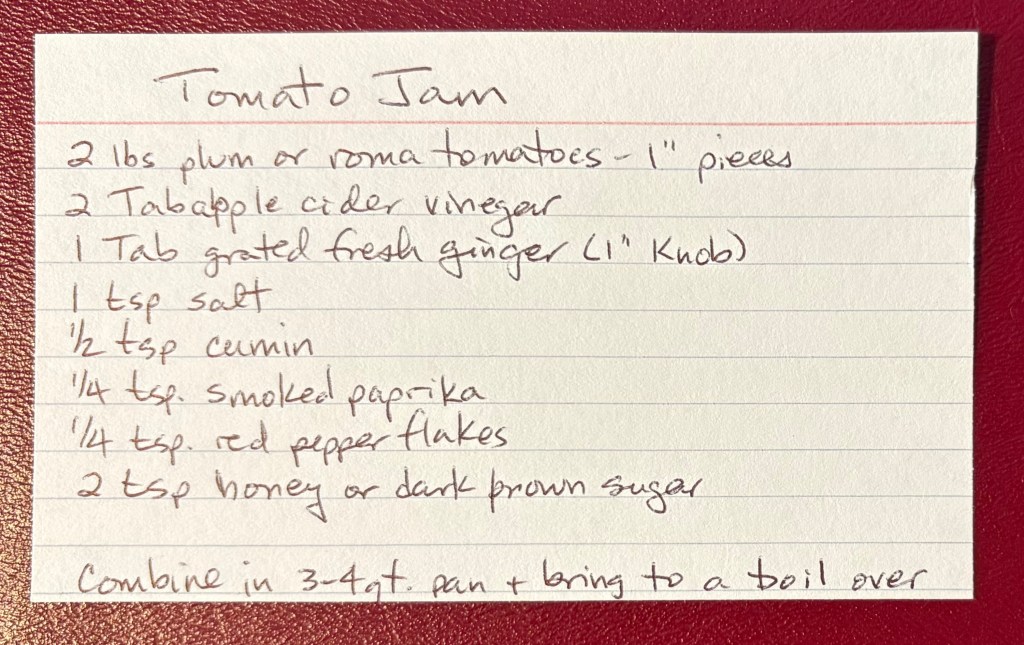 Tomato Jam
2 lbs plum or roma tomatoes - 1" pieces
2 Tab apple cider vinegar
1 Tab grated fresh ginger (1" Knob)
1 tsp salt
1/2 tsp cumin
1/4 tsp. smoked paprika
1/4 tsp. red pepper flakes
2 tsp honey or dark brown sugar
Combine in 3-4qt. pan + bring to a boil over